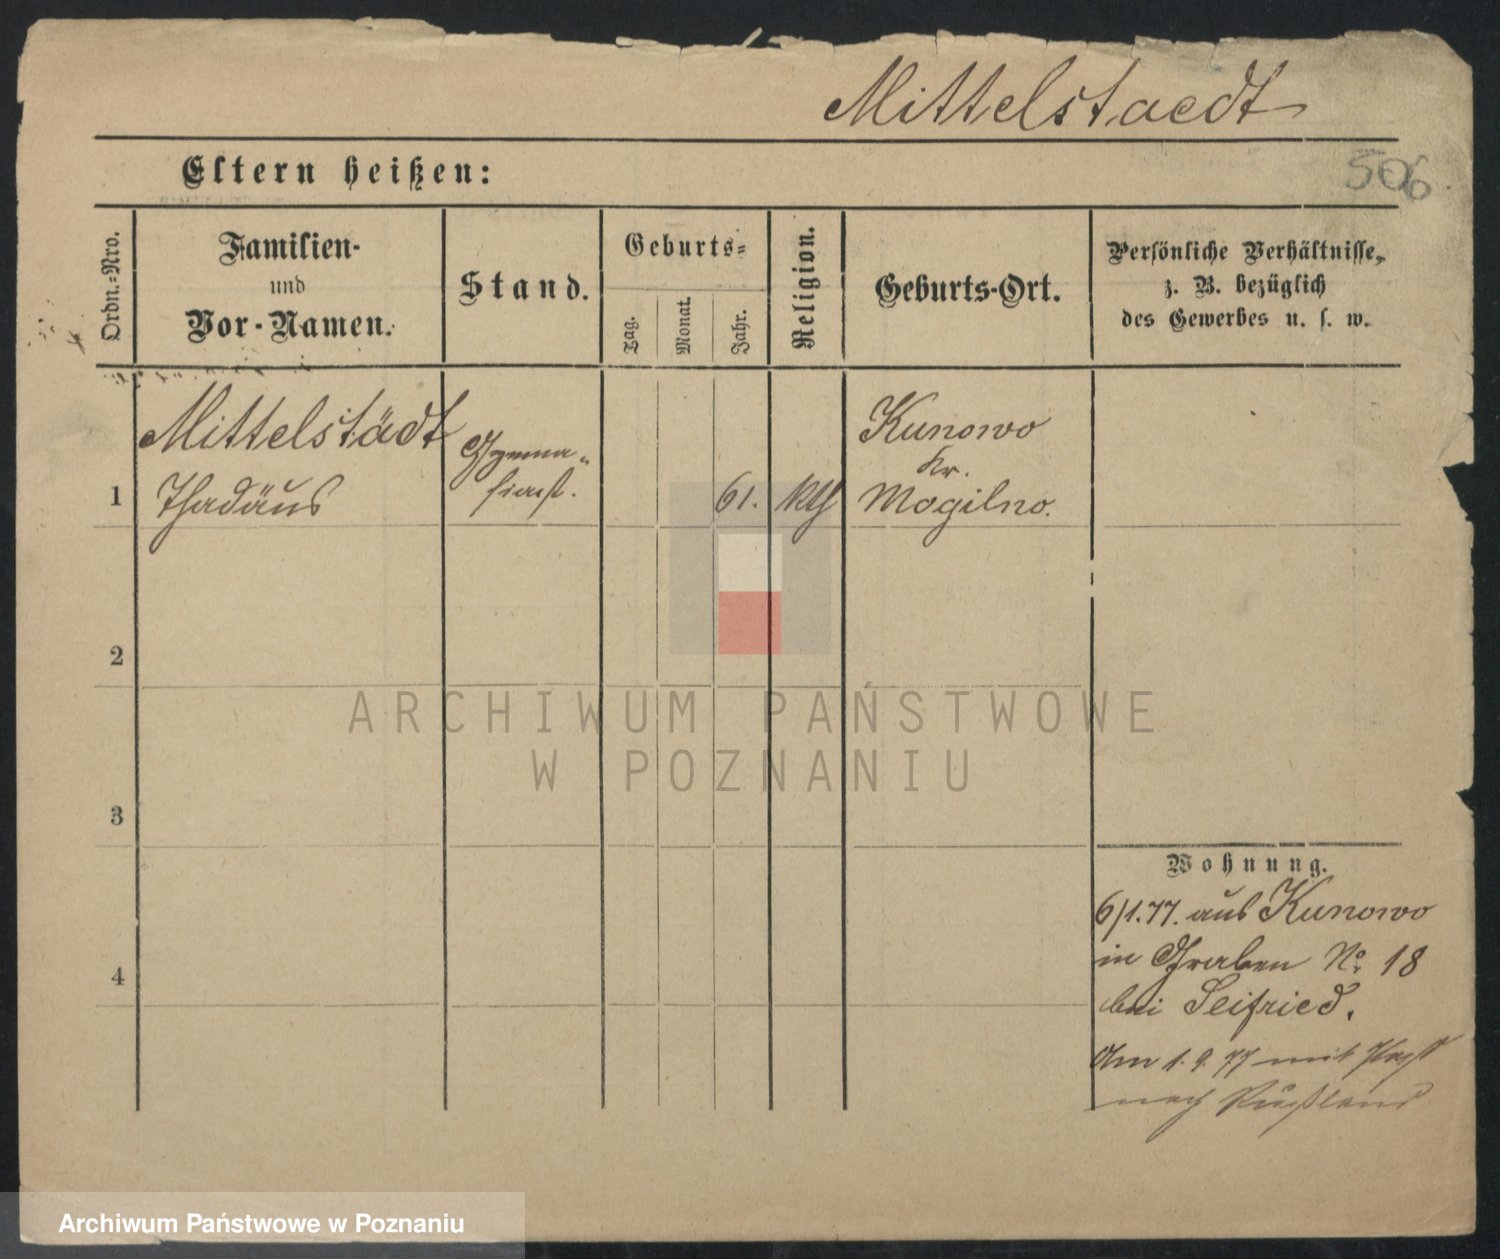 Mittelstaedt
Eltern heißen:
506
Ordn.-Nro.
Familien-
und
Vor-Namen.
Stand.
Geburts-
Tag.
Monat.
Jahr.
Religion.
Geburts-Ort.
Persönliche Verhältnisse,
z. B. bezüglich
des Gewerbes u. s. w.
1
Mittelstädt
Thadäus
Gymna-
siast.
61.
kth
Kunowo
Kr.
Mogilno.
2
3
4
Wohnung.
6/1.77. aus Kunowo
in Graben No. 18
bei Seifried.
Am 1.9.77 mit Paß
nach Rußland
ARCHIWUM PAŃSTWOWE
W POZNANIU
Archiwum Państwowe w Poznaniu